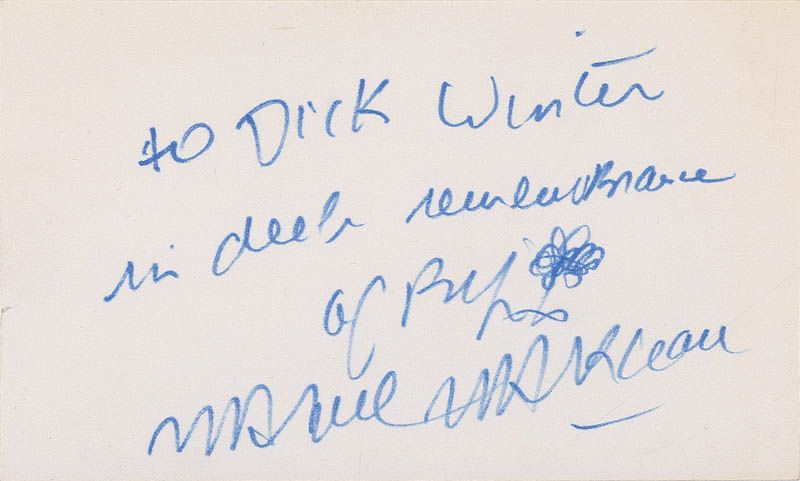 to Dick Winter
in deep remembrance
of Bip
Marcel Marceau